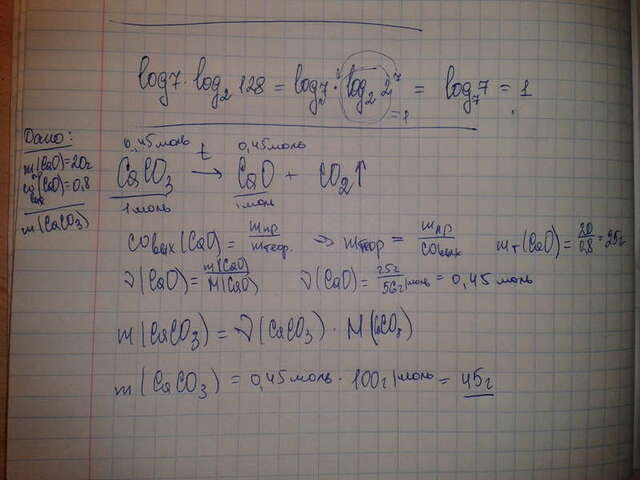 log7 · log₂ 128 = log₇7 · log₂ 2⁷ = log₇ 7 = 1
= 1
Дано:
m(CaO)=20г
ω(CaO)=0,8
вых
m(CaCO₃)
0,45моль t 0,45моль
CaCO₃ → CaO + CO₂↑
1моль 1моль
ωвых(CaO) = mпр/mтеор. => mтеор = mпр/ωвых mт(CaO) = 20/0,8 = 25г
ν(CaO) = m(CaO)/M(CaO) ν(CaO) = 25г/56г/моль = 0,45 моль
m(CaCO₃) = ν(CaCO₃) · M(CaCO₃)
m(CaCO₃) = 0,45моль · 100г/моль = 45г